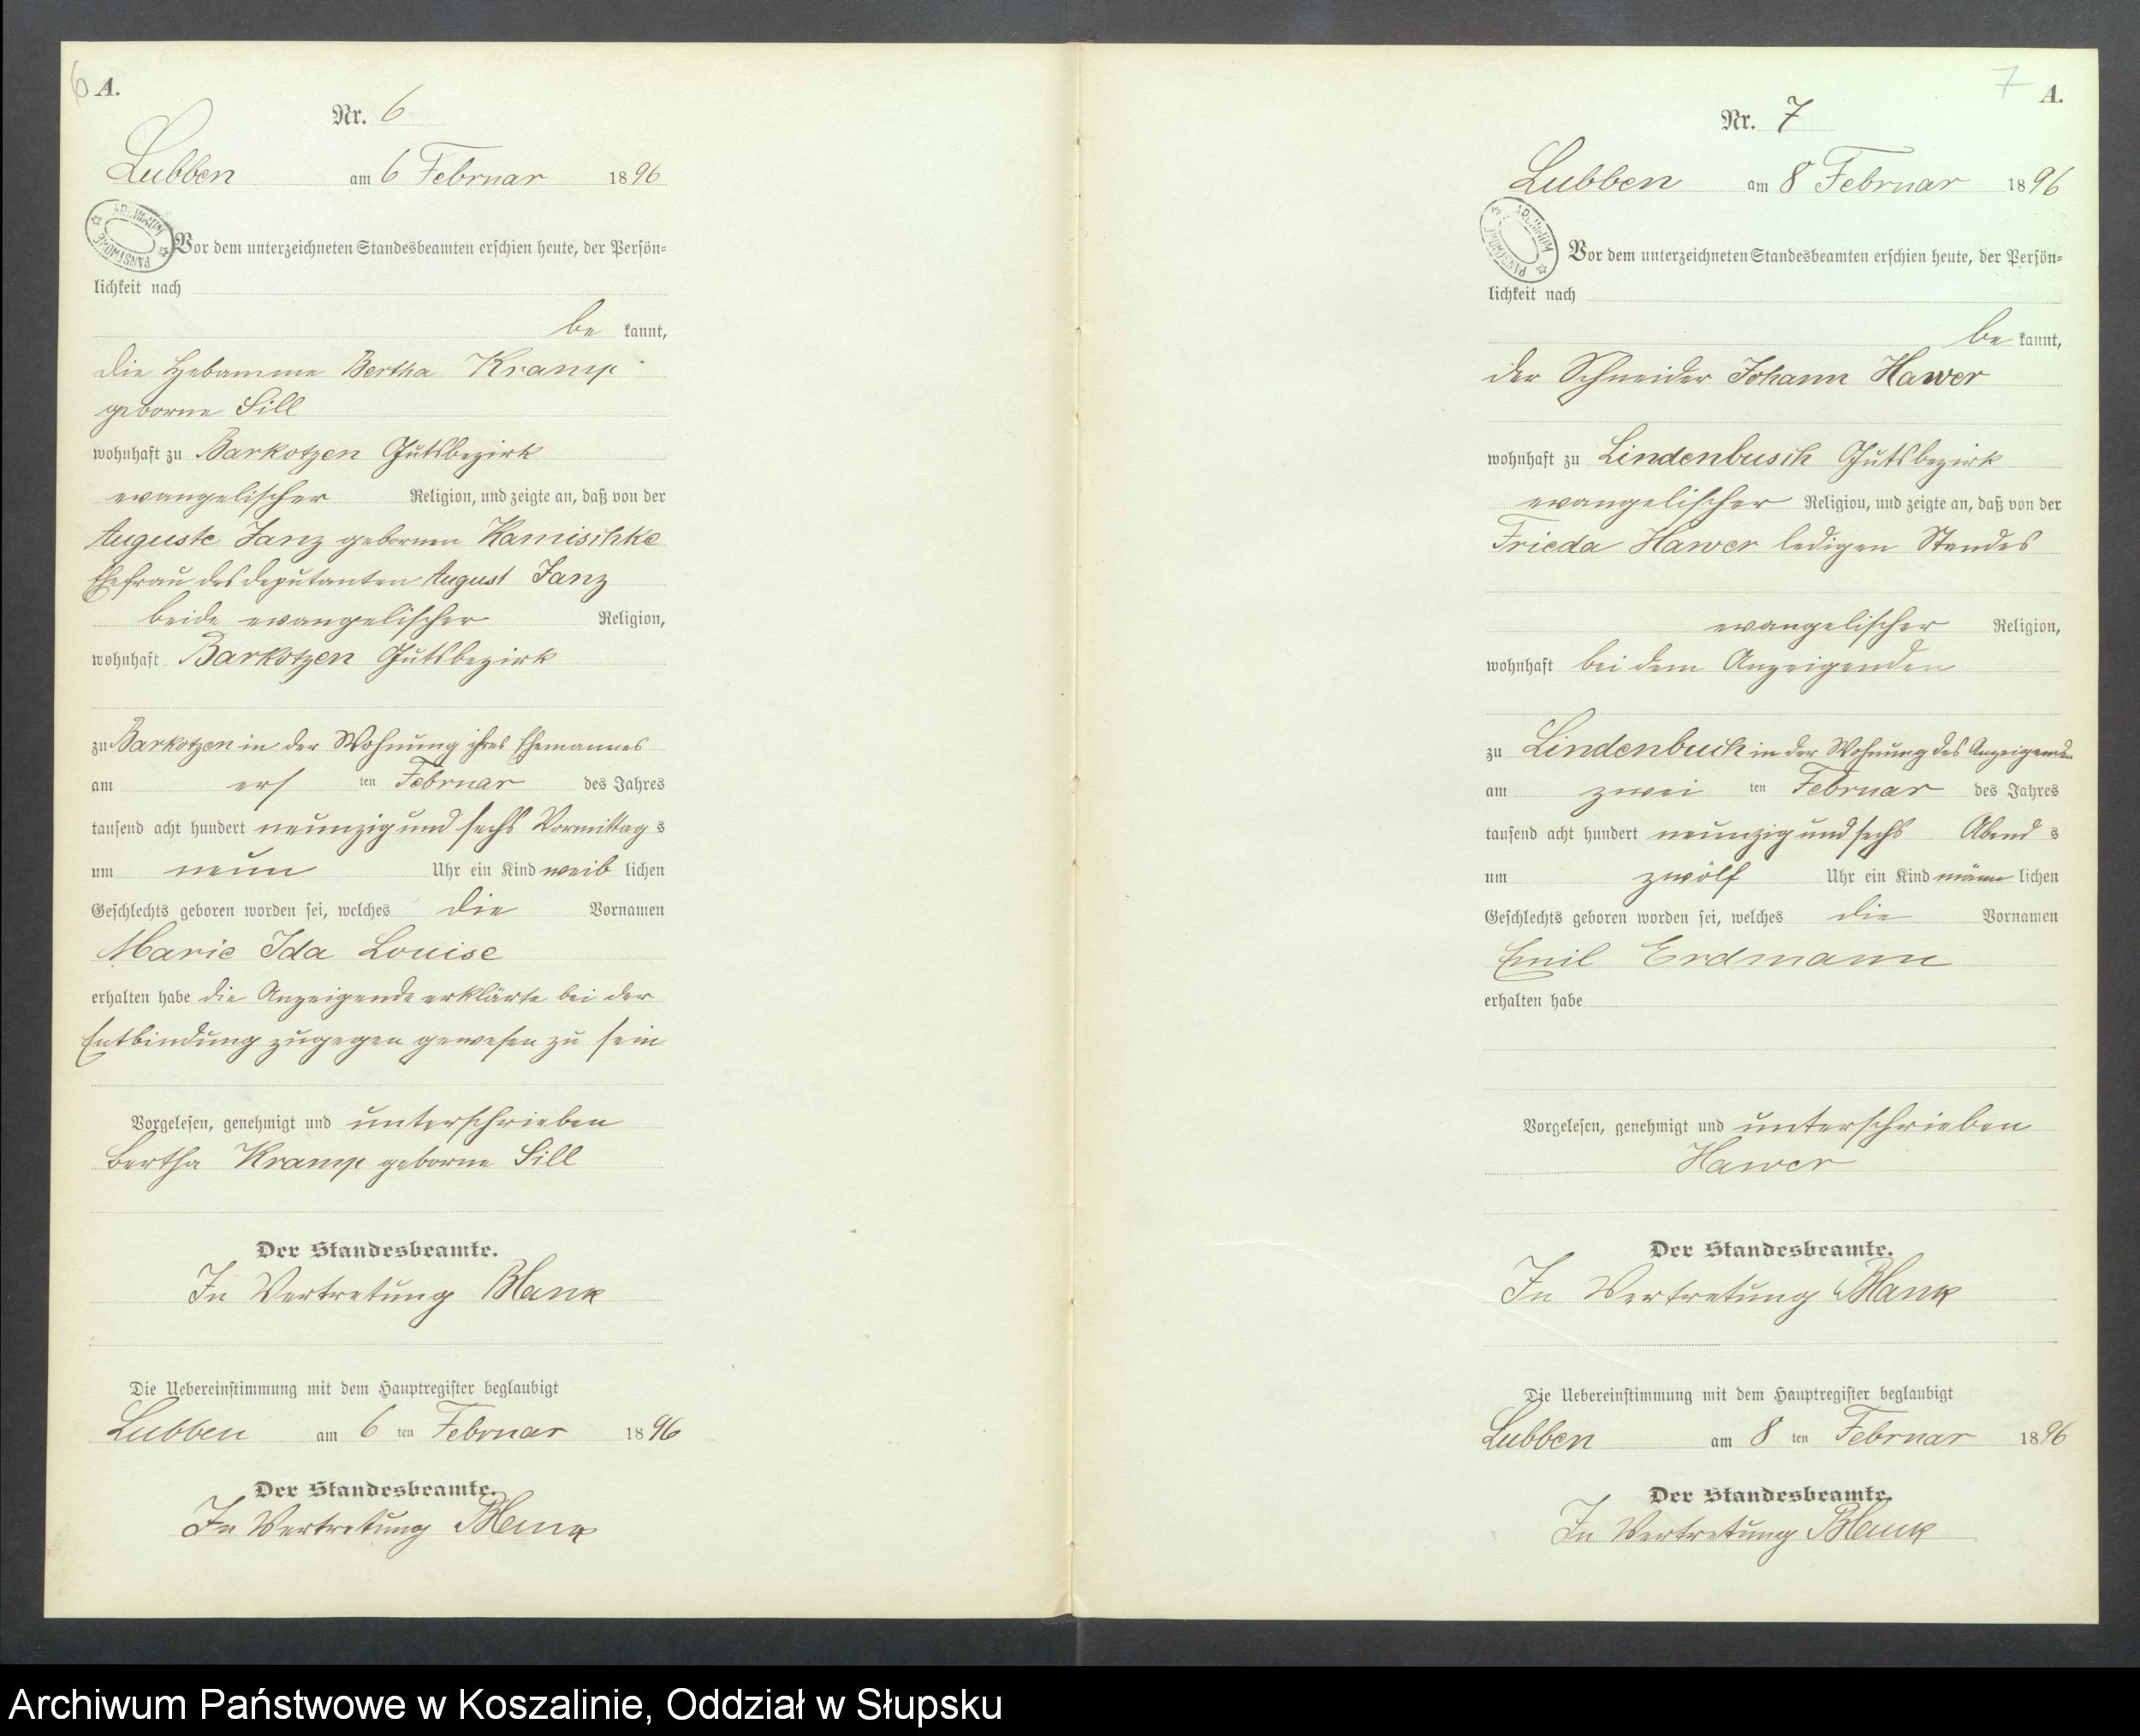 6 A.
Nr. 6
Lubben am 6 Februar 1896
ARCHIWUM PAŃSTWOWE
Vor dem unterzeichneten Standesbeamten erschien heute, der Persön=
lichkeit nach
be kannt,
die Hebamme Bertha Kramp
geborne Sill
wohnhaft zu Barkotzen Gutsbezirk
evangelischer Religion, und zeigte an, daß von der
Auguste Janz gebornen Kamischke
Ehefrau des Deputanten August Janz
beide evangelischer Religion,
wohnhaft Barkotzen Gutsbezirk
zu Barkotzen in der Wohnung ihres Ehemannes
am ers ten Februar des Jahres
tausend acht hundert neunzig und sechs Vormittag s
um neun Uhr ein Kind weib lichen
Geschlechts geboren worden sei, welches die Vornamen
Marie Ida Louise
erhalten habe die Anzeigende erklärte bei der
Entbindung zugegen gewesen zu sein
Vorgelesen, genehmigt und unterschrieben
Bertha Kramp geborne Sill
Der Standesbeamte.
In Vertretung Blank
Die Uebereinstimmung mit dem Hauptregister beglaubigt
Lubben am 6 ten Februar 1896
Der Standesbeamte.
In Vertretung Blank
7 A.
Nr. 7
Lubben am 8 Februar 1896
ARCHIWUM PAŃSTWOWE
Vor dem unterzeichneten Standesbeamten erschien heute, der Persön=
lichkeit nach
be kannt,
der Schneider Johann Hawer
wohnhaft zu Lindenbusch Gutsbezirk
evangelischer Religion, und zeigte an, daß von der
Frieda Hawer ledigen Standes
evangelischer Religion,
wohnhaft bei dem Anzeigenden
zu Lindenbuch in der Wohnung des Anzeigenden
am zwei ten Februar des Jahres
tausend acht hundert neunzig und sechs Abend s
um zwölf Uhr ein Kind männ lichen
Geschlechts geboren worden sei, welches die Vornamen
Emil Erdmann
erhalten habe
Vorgelesen, genehmigt und unterschrieben
Hawer
Der Standesbeamte.
In Vertretung Blank
Die Uebereinstimmung mit dem Hauptregister beglaubigt
Lubben am 8 ten Februar 1896
Der Standesbeamte.
In Vertretung Blank
Archiwum Państwowe w Koszalinie, Oddział w Słupsku